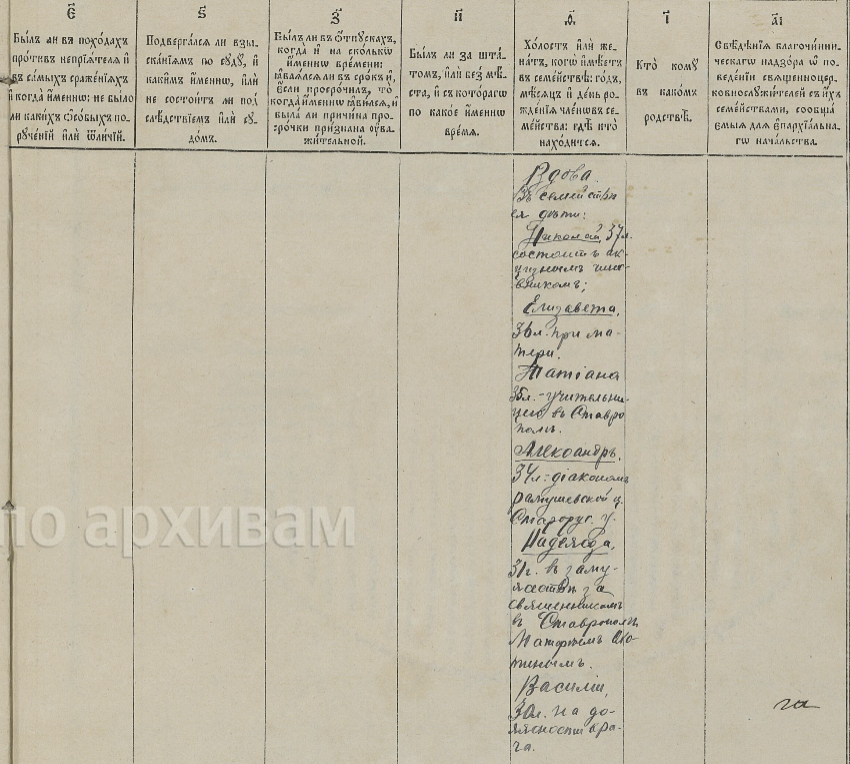 Є҃
Ѕ҃
З҃
И҃
Ѳ҃
І҃
АІ҃
Бы́лъ ли въ похо́дахъ
про́тивъ непрїѧ́телѧ и҆
въ са́мыхъ сраже́нїѧхъ
и҆ когда̀ и҆́меннѡ: не бы́ло
ли каки́хъ ѻ҆со́быхъ по-
рꙋче́нїй и҆лѝ ѿли́чїй.
Подверга́лсѧ ли взы-
ска́нїѧмъ по сꙋдꙋ̀, и҆
каки́мъ и҆́меннѡ, и҆лѝ
не состои́тъ ли под̾
слѣ́дствїемъ и҆лѝ сꙋ-
до́мъ.
Бы́лъ ли въ ѻ҆́тпꙋскахъ,
когда̀ и҆ на ско́лькѡ
и҆́меннѡ вре́мени:
ꙗ҆влѧ́лсѧ ли въ сро́къ и҆,
є҆́сли просро́чилъ, то̀
когда̀ и҆́меннѡ ꙗ҆ви́лсѧ, и҆
была̀ ли причи́на про-
сро́чки при́знана ᲂу҆ва-
жи́тельной.
Бы́лъ ли за шта́-
томъ, и҆лѝ без̾ мѣ́-
ста, и҆ съ кото́рагѡ
по како́е и҆́меннѡ
вре́мѧ.
Хо́лостъ и҆лѝ же-
на́тъ, когѡ̀ и҆мѣ́етъ
въ семе́йствѣ: го́дъ,
мѣ́сѧцъ и҆ де́нь ро-
жде́нїѧ чле́нѡвъ се-
ме́йства: гдѣ̀ кто̀
нахо́дитсѧ.
Кто̀ комꙋ̀
въ како́мъ
родствѣ̀.
Свѣ́дѣнїѧ благочи́нни-
ческагѡ надзо́ра ѡ҆ по-
веде́нїи свѧщенноцер-
ковнослꙋжи́телей съ и҆́хъ
семе́йствами, сообща́-
ємыѧ для є҆пархїа́льна-
гѡ нача́льства.
Вдова.
Въ семействѣ
ея дѣти:
Николай, 37 л.
состоитъ ак-
цизнымъ чино-
вникомъ;
Елизавета,
36 л. при ма-
тери.
Татіана
35 л. - учительни-
цею въ Ставро
полѣ.
Александръ,
34 л. - діакономъ
Рамушевской ц.
Старорус. у.
Надежда,
31 г. въ заму-
жествѣ за
священникомъ
въ Ставрополѣ
Василій,
30 л. на до-
лжности вра-
ча.
по архивам